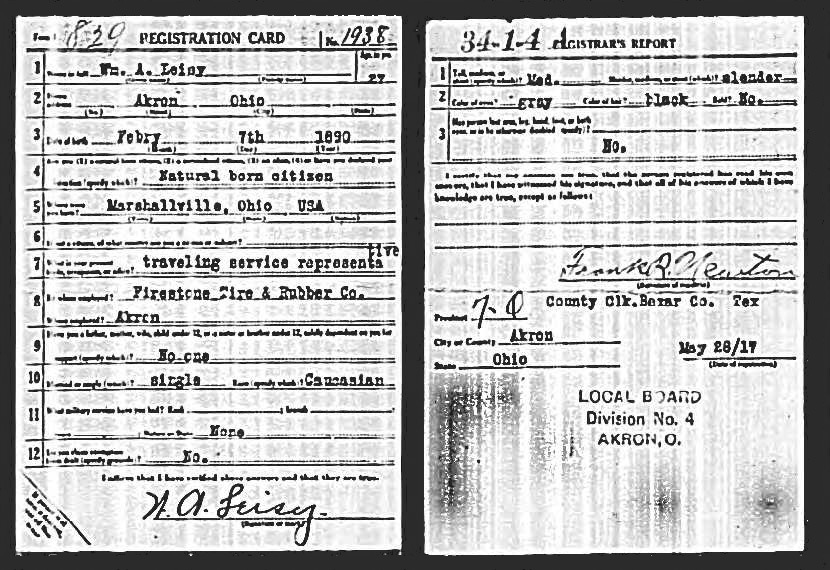 Form 1 839 REGISTRATION CARD No. 1938
1 Name in full Wm. A. Leisy Age, in yrs. 27
2 Home address Akron Ohio
(No.) (Street) (City) (State)
3 Date of birth Febry 7th 1890
(Month) (Day) (Year)
4 Are you (1) a natural born citizen, (2) a naturalized citizen, (3) an alien, (4) or have you declared your
intention (specify which)? Natural born citizen
5 Where were you born? Marshallville, Ohio USA
(Town) (State) (Nation)
6 If not a citizen, of what country are you a citizen or subject?
7 What is your present trade, occupation, or office? traveling service representative
8 By whom employed? Firestone Tire & Rubber Co.
Where employed? Akron
9 Have you a father, mother, wife, child under 12, or a sister or brother under 12, solely dependent on you for
support (specify which)? No one
10 Married or single (which)? single Race (specify which)? Caucasian
11 What military service have you had? Rank ; branch
; Nation or State None
12 Do you claim exemption from draft (specify grounds)? No.
I affirm that I have verified above answers and that they are true.
W. A. Leisy.
(Signature or mark)
34-1-4 A REGISTRAR'S REPORT
1 Tall, medium, or short (specify which)? Med. Slender, medium, or stout (which)? slender
2 Color of eyes? gray Color of hair? black Bald? No.
3 Has person lost arm, leg, hand, foot, or both
eyes, or is he otherwise disabled (specify)?
No.
I certify that my answers are true, that the person registered has read his own
answers, that I have witnessed his signature, and that all of his answers of which I have
knowledge are true, except as follows:
Frank R. Newton
(Signature of registrar)
Precinct 7-0 County Clk. Bexar Co. Tex
City or County Akron
State Ohio
May 28/17
(Date of registration)
LOCAL BOARD
Division No. 4
AKRON, O.